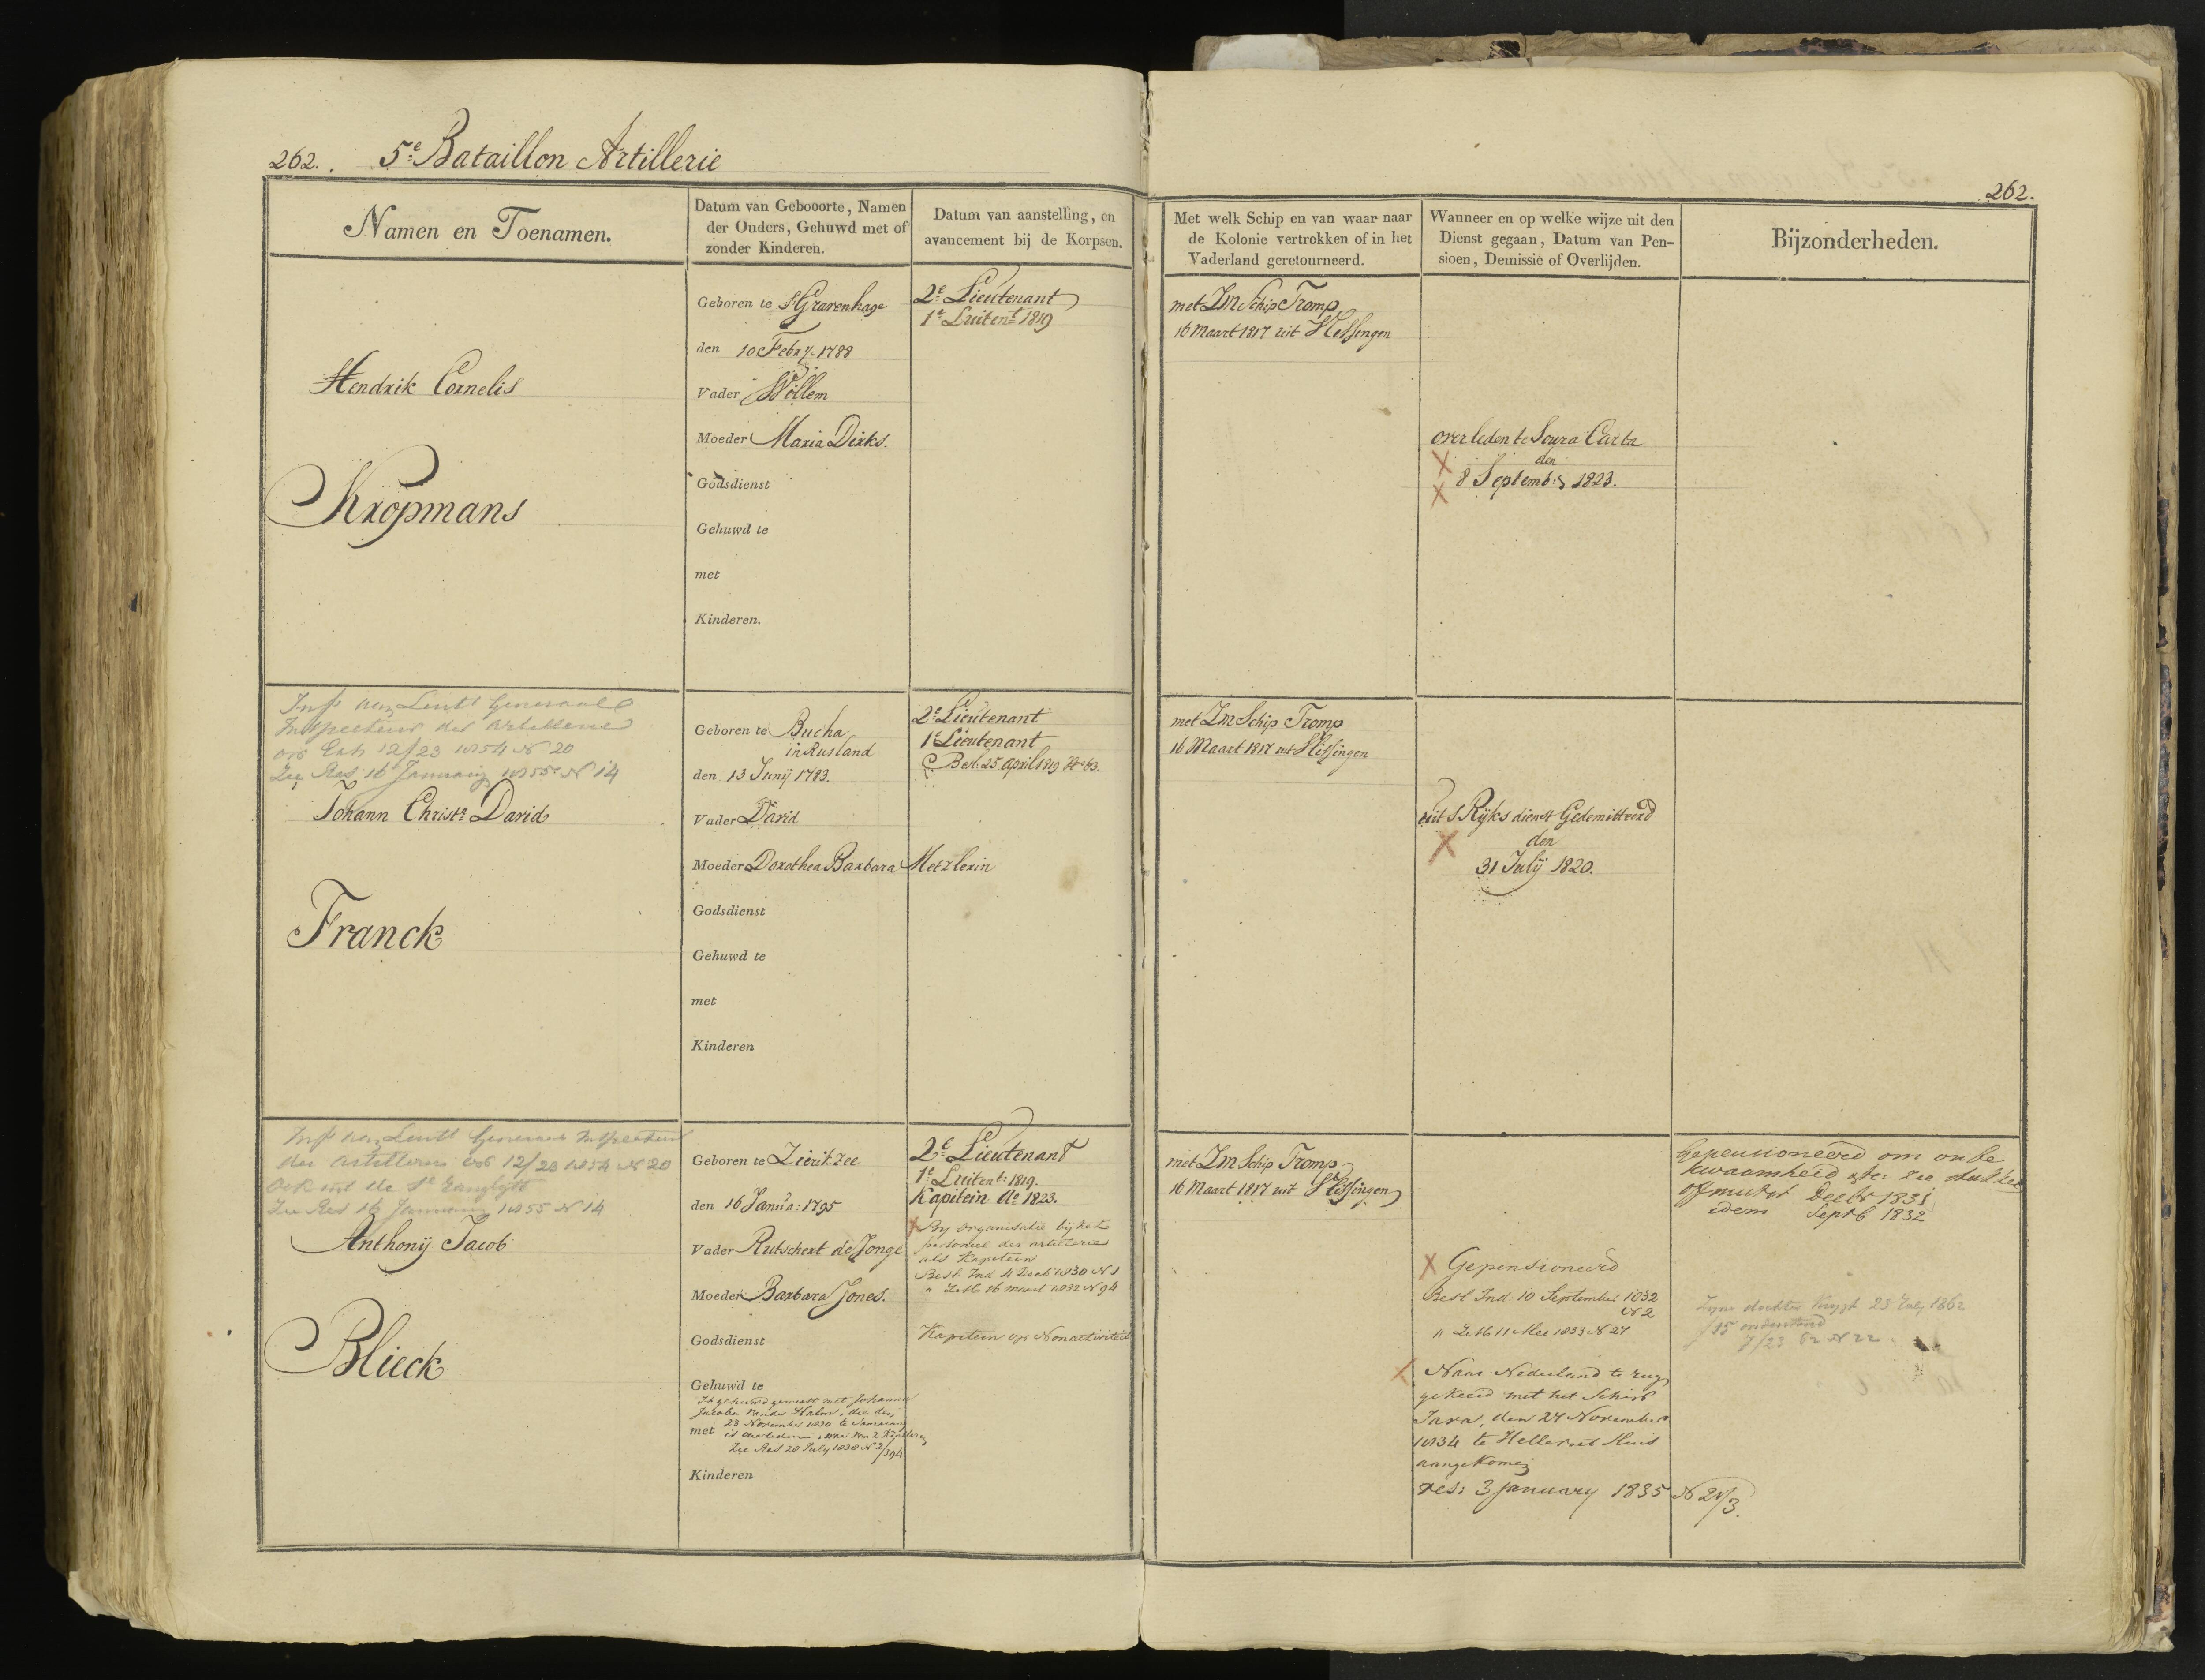 262. 5e Bataillon Artillerie
262.
Namen en Toenamen.
Datum van Gebooorte, Namen
der Ouders, Gehuwd met of
zonder Kinderen.
Datum van aanstelling, en
avancement bij de Korpsen.
Met welk Schip en van waar naar
de Kolonie vertrokken of in het
Vaderland geretourneerd.
Wanneer en op welke wijze uit den
Dienst gegaan, Datum van Pen-
sioen, Demissie of Overlijden.
Bijzonderheden.
Hendrik Cornelis
Kropmans
Geboren te s'Gravenhage
den 10 Febry: 1788
Vader Willem
Moeder Maria Dirks.
Godsdienst
Gehuwd te
met
Kinderen.
2e Lieutenant
1e Luitent 1819
met ZM Schip Tromp
16 Maart 1817 uit Vlissingen
overleden te Soura Carta
den
8 Septembr 1823.
Inf aan Lieutt Generaal
Inspecteur der Artillerie
op Exh 12/23 1854 N 20
Zie Res 16 January 1855 N 14
Johann Christn David
Franck
Geboren te Bucha
in Rusland
den 13 Junij 1783.
Vader David
Moeder Dorothea Barbara Metzlerin
Godsdienst
Gehuwd te
met
Kinderen
2e Lieutenant
1e Lieutenant
Besl. 25 April 1819 No 63.
met ZM Schip Tromp
16 Maart 1817 uit Vlissingen
uit S Rijks dienst Gedemitteerd
den
31 Julij 1820.
Inf aan Lieutt Generaal Inspecteur
der Artillerie op 12/23 1854 N 20
Ook uit de
Zie Res 16 January 1855 N 14
Anthonij Jacob
Blieck
Geboren te Zierikzee
den 16 Janua: 1795
Vader Rutschert de Jonge
Moeder Barbara Jones.
Godsdienst
Gehuwd te
Is gehuwd geweest met Johanna
Jacoba van der, die den
23 November 1830 te Samarang
met is overleden, 2 Kinderen
Zie Res 20 July 1838 N 2/394
Kinderen
2e Lieutenant
1e Luitent: 1819.
Kapitein Ao 1823.
By organisatie by het
personeel der artillerie
als Kapitein
Besl Ind 4 Decb 1830 N 1
" ZM 16 maart 1832 N 94
Kapitein op Nonactiviteit
met ZM Schip Tromp
16 Maart 1817 uit Vlissingen
Gepensioneerd
Besl Ind: 10 September 1832
N 2
" ZM 11 Mei 1833 N 27
Naar Nederland te rug
gekeerd met het Schip
Java, den 24 November
1834 te Hellevoet Sluis
aangekomen
res: 3 January 1835 N 21/3.
Gepensioneerd om onbe
kwaamheid zie
Decbr 1831
idem Septb 1832
Zyne dochter krygt 23 July 1862
onderstand
7/23 62 N 22